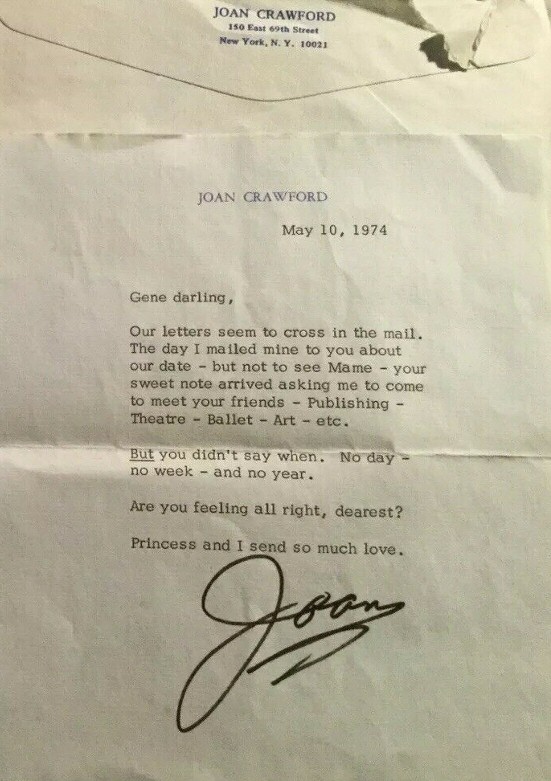 JOAN CRAWFORD
150 East 69th Street
New York, N. Y. 10021
JOAN CRAWFORD
May 10, 1974
Gene darling,
Our letters seem to cross in the mail.
The day I mailed mine to you about
our date - but not to see Mame - your
sweet note arrived asking me to come
to meet your friends - Publishing -
Theatre - Ballet - Art - etc.
But you didn't say when.  No day -
no week - and no year.
Are you feeling all right, dearest?
Princess and I send so much love.
Joan